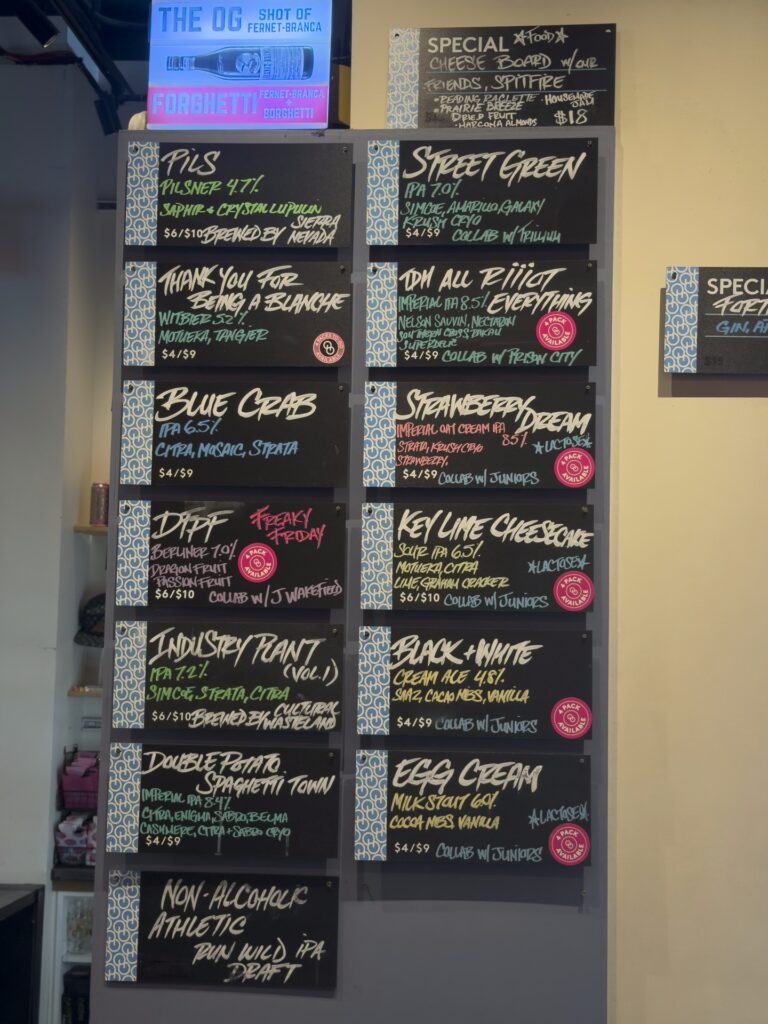 THE OG
SHOT OF
FERNET-BRANCA
FORGHETTI
FERNET-BRANCA
+
BORGHETTI
SPECIAL ☆FOOD☆
CHEESE BOARD w/ OUR
FRIENDS, SPITFIRE
• READING RACLETTE • HOUSEMADE
• PRAIRIE BREEZE
DRIED FRUIT
• MARCONA ALMONDS
$18
PILS
PILSNER 4.7%
SAPHIR + CRYSTAL LUPULIN
$6/$10 BREWED BY SIERRA
NEVADA
THANK YOU FOR
BEING A BLANCHE
WITBIER 5.2%
MOTUEKA, TANGIER
$4/$9
4 PACK
AVAILABLE
BLUE CRAB
IPA 6.5%
CITRA, MOSAIC, STRATA
$4/$9
DFPF
FREAKY
FRIDAY
BERLINER 7.0%
DRAGON FRUIT
PASSION FRUIT
4 PACK
AVAILABLE
$6/$10 COLLAB w/ J WAKEFIELD
INDUSTRY PLANT
(VOL. 1)
IPA 7.2%
SIMCOE, STRATA, CITRA
$6/$10 BREWED BY CULTURAL
WASTELAND
DOUBLE POTATO
SPAGHETTI TOWN
IMPERIAL IPA 8.4%
CITRA, ENIGMA, SABRO, BELMA
CASHMERE, CITRA + SABRO CRYO
$4/$9
NON-ALCOHOLIC
ATHLETIC
RUN WILD IPA
DRAFT
STREET GREEN
IPA 7.0%
SIMCOE, AMARILLO, GALAXY
KRUSH CRYO
$4/$9 COLLAB w/ TRILLIUM
TDH ALL RIIIOT
EVERYTHING
IMPERIAL IPA 8.5%
NELSON SAUVIN, NECTARON
SOUTHERN CROSS, RAKAU
SUPERDELIC
4 PACK
AVAILABLE
$4/$9 COLLAB w/ PRISON CITY
STRAWBERRY DREAM
IMPERIAL OAT CREAM IPA
8.5%
STRATA, KRUSH CRYO
STRAWBERRY,
☆LACTOSE☆
4 PACK
AVAILABLE
$4/$9 COLLAB w/ JUNIORS
KEY LIME CHEESECAKE
SOUR IPA 6.5%
MOTUEKA, CITRA
LIME, GRAHAM CRACKER
☆LACTOSE☆
4 PACK
AVAILABLE
$6/$10 COLLAB w/ JUNIORS
BLACK + WHITE
CREAM ALE 4.8%
SAAZ, CACAO NIBS, VANILLA
4 PACK
AVAILABLE
$4/$9 COLLAB w/ JUNIORS
EGG CREAM
MILK STOUT 6.0%
COCOA NIBS, VANILLA
☆LACTOSE☆
4 PACK
AVAILABLE
$4/$9 COLLAB w/ JUNIORS
SPECIA
GIN,